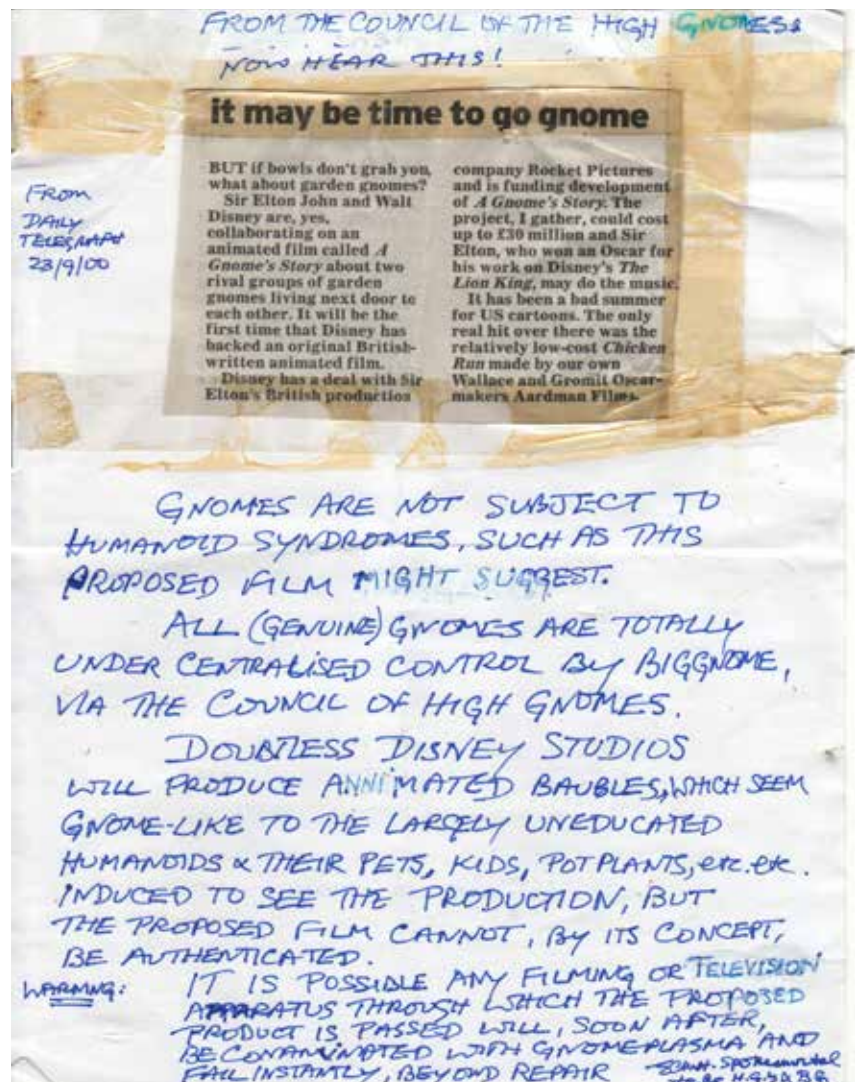 FROM THE COUNCIL OF THE HIGH GNOMES:
NOW HEAR THIS!
it may be time to go gnome
BUT if bowls don't grab you,
what about garden gnomes?
Sir Elton John and Walt
Disney are, yes,
collaborating on an
animated film called A
Gnome's Story about two
rival groups of garden
gnomes living next door to
each other. It will be the
first time that Disney has
backed an original British-
written animated film.
Disney has a deal with Sir
Elton's British production
company Rocket Pictures
and is funding development
of A Gnome's Story. The
project, I gather, could cost
up to £30 million and Sir
Elton, who won an Oscar for
his work on Disney's The
Lion King, may do the music.
It has been a bad summer
for US cartoons. The only
real hit over there was the
relatively low-cost Chicken
Run made by our own
Wallace and Gromit Oscar-
makers Aardman Films.
FROM
DAILY
TELEGRAPH
23/9/00
GNOMES ARE NOT SUBJECT TO
HUMANOID SYNDROMES, SUCH AS THIS
PROPOSED FILM MIGHT SUGGEST.
ALL (GENUINE) GNOMES ARE TOTALLY
UNDER CENTRALISED CONTROL BY BIGGNOME,
VIA THE COUNCIL OF HIGH GNOMES.
DOUBTLESS DISNEY STUDIOS
WILL PRODUCE ANNIMATED BAUBLES, WHICH SEEM
GNOME-LIKE TO THE LARGELY UNEDUCATED
HUMANOIDS & THEIR PETS, KIDS, POT PLANTS, etc. etc.
INDUCED TO SEE THE PRODUCTION, BUT
THE PROPOSED FILM CANNOT, BY ITS CONCEPT,
BE AUTHENTICATED.
WARNING: IT IS POSSIBLE ANY FILMING OR TELEVISION
APPARATUS THROUGH WHICH THE PROPOSED
PRODUCT IS PASSED WILL, SOON AFTER,
BE CONTAMINATED WITH GNOMEPLASMA AND
FAIL INSTANTLY, BEYOND REPAIR